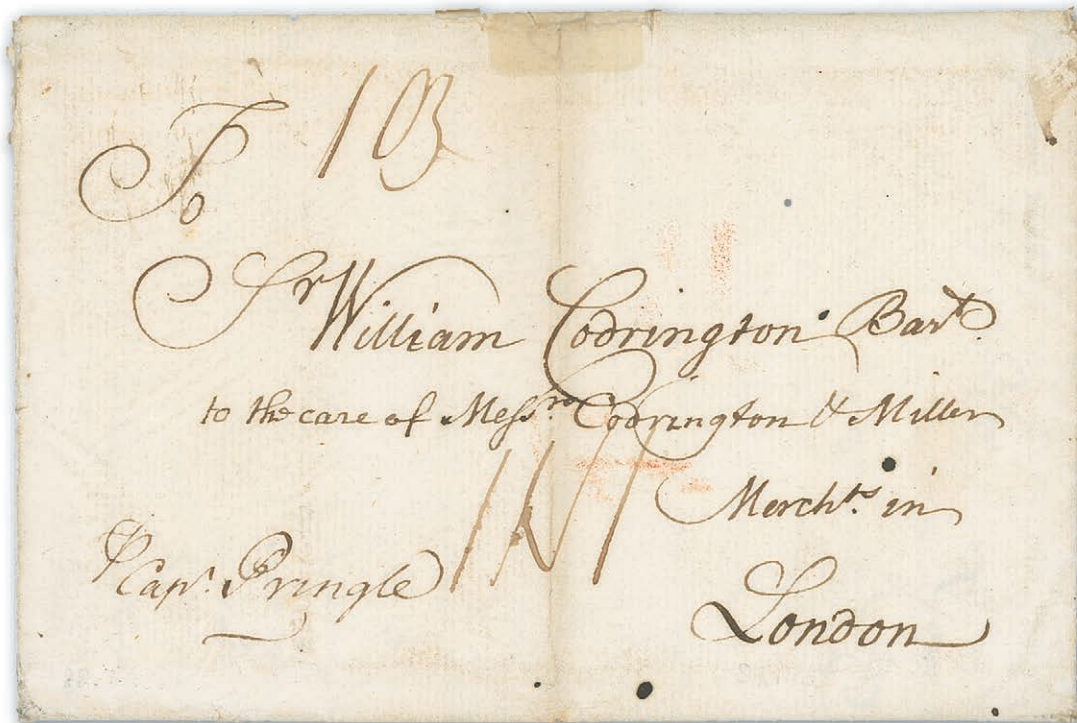 To
Sr William Codrington Bart.
to the care of Messrs Codrington & Miller
Merchts. in
London
⅌ Capt. Pringle